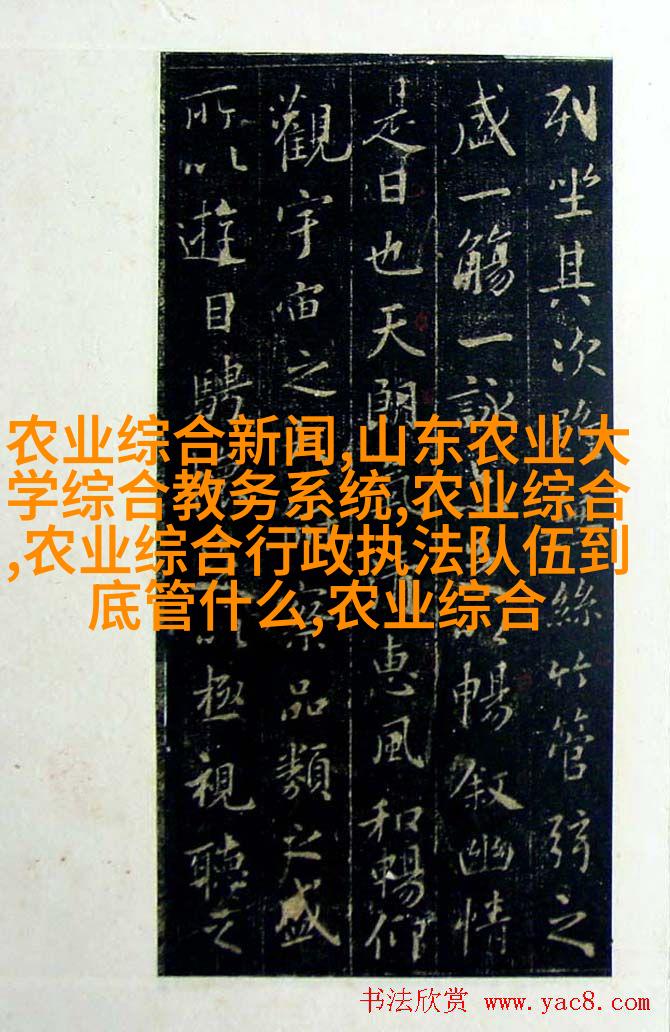 列坐其次雖絲竹管弦之
盛一觴一詠暢叙幽情
是日也天朗氣惠風和暢仰
觀宇宙之察品類之盛
所以遊目騁以極視聽之
农业综合新闻,山东农业大
学综合教务系统,农业综合
,农业综合行政执法队伍到
底管什么,农业综合
书法欣赏 www.yac8.com